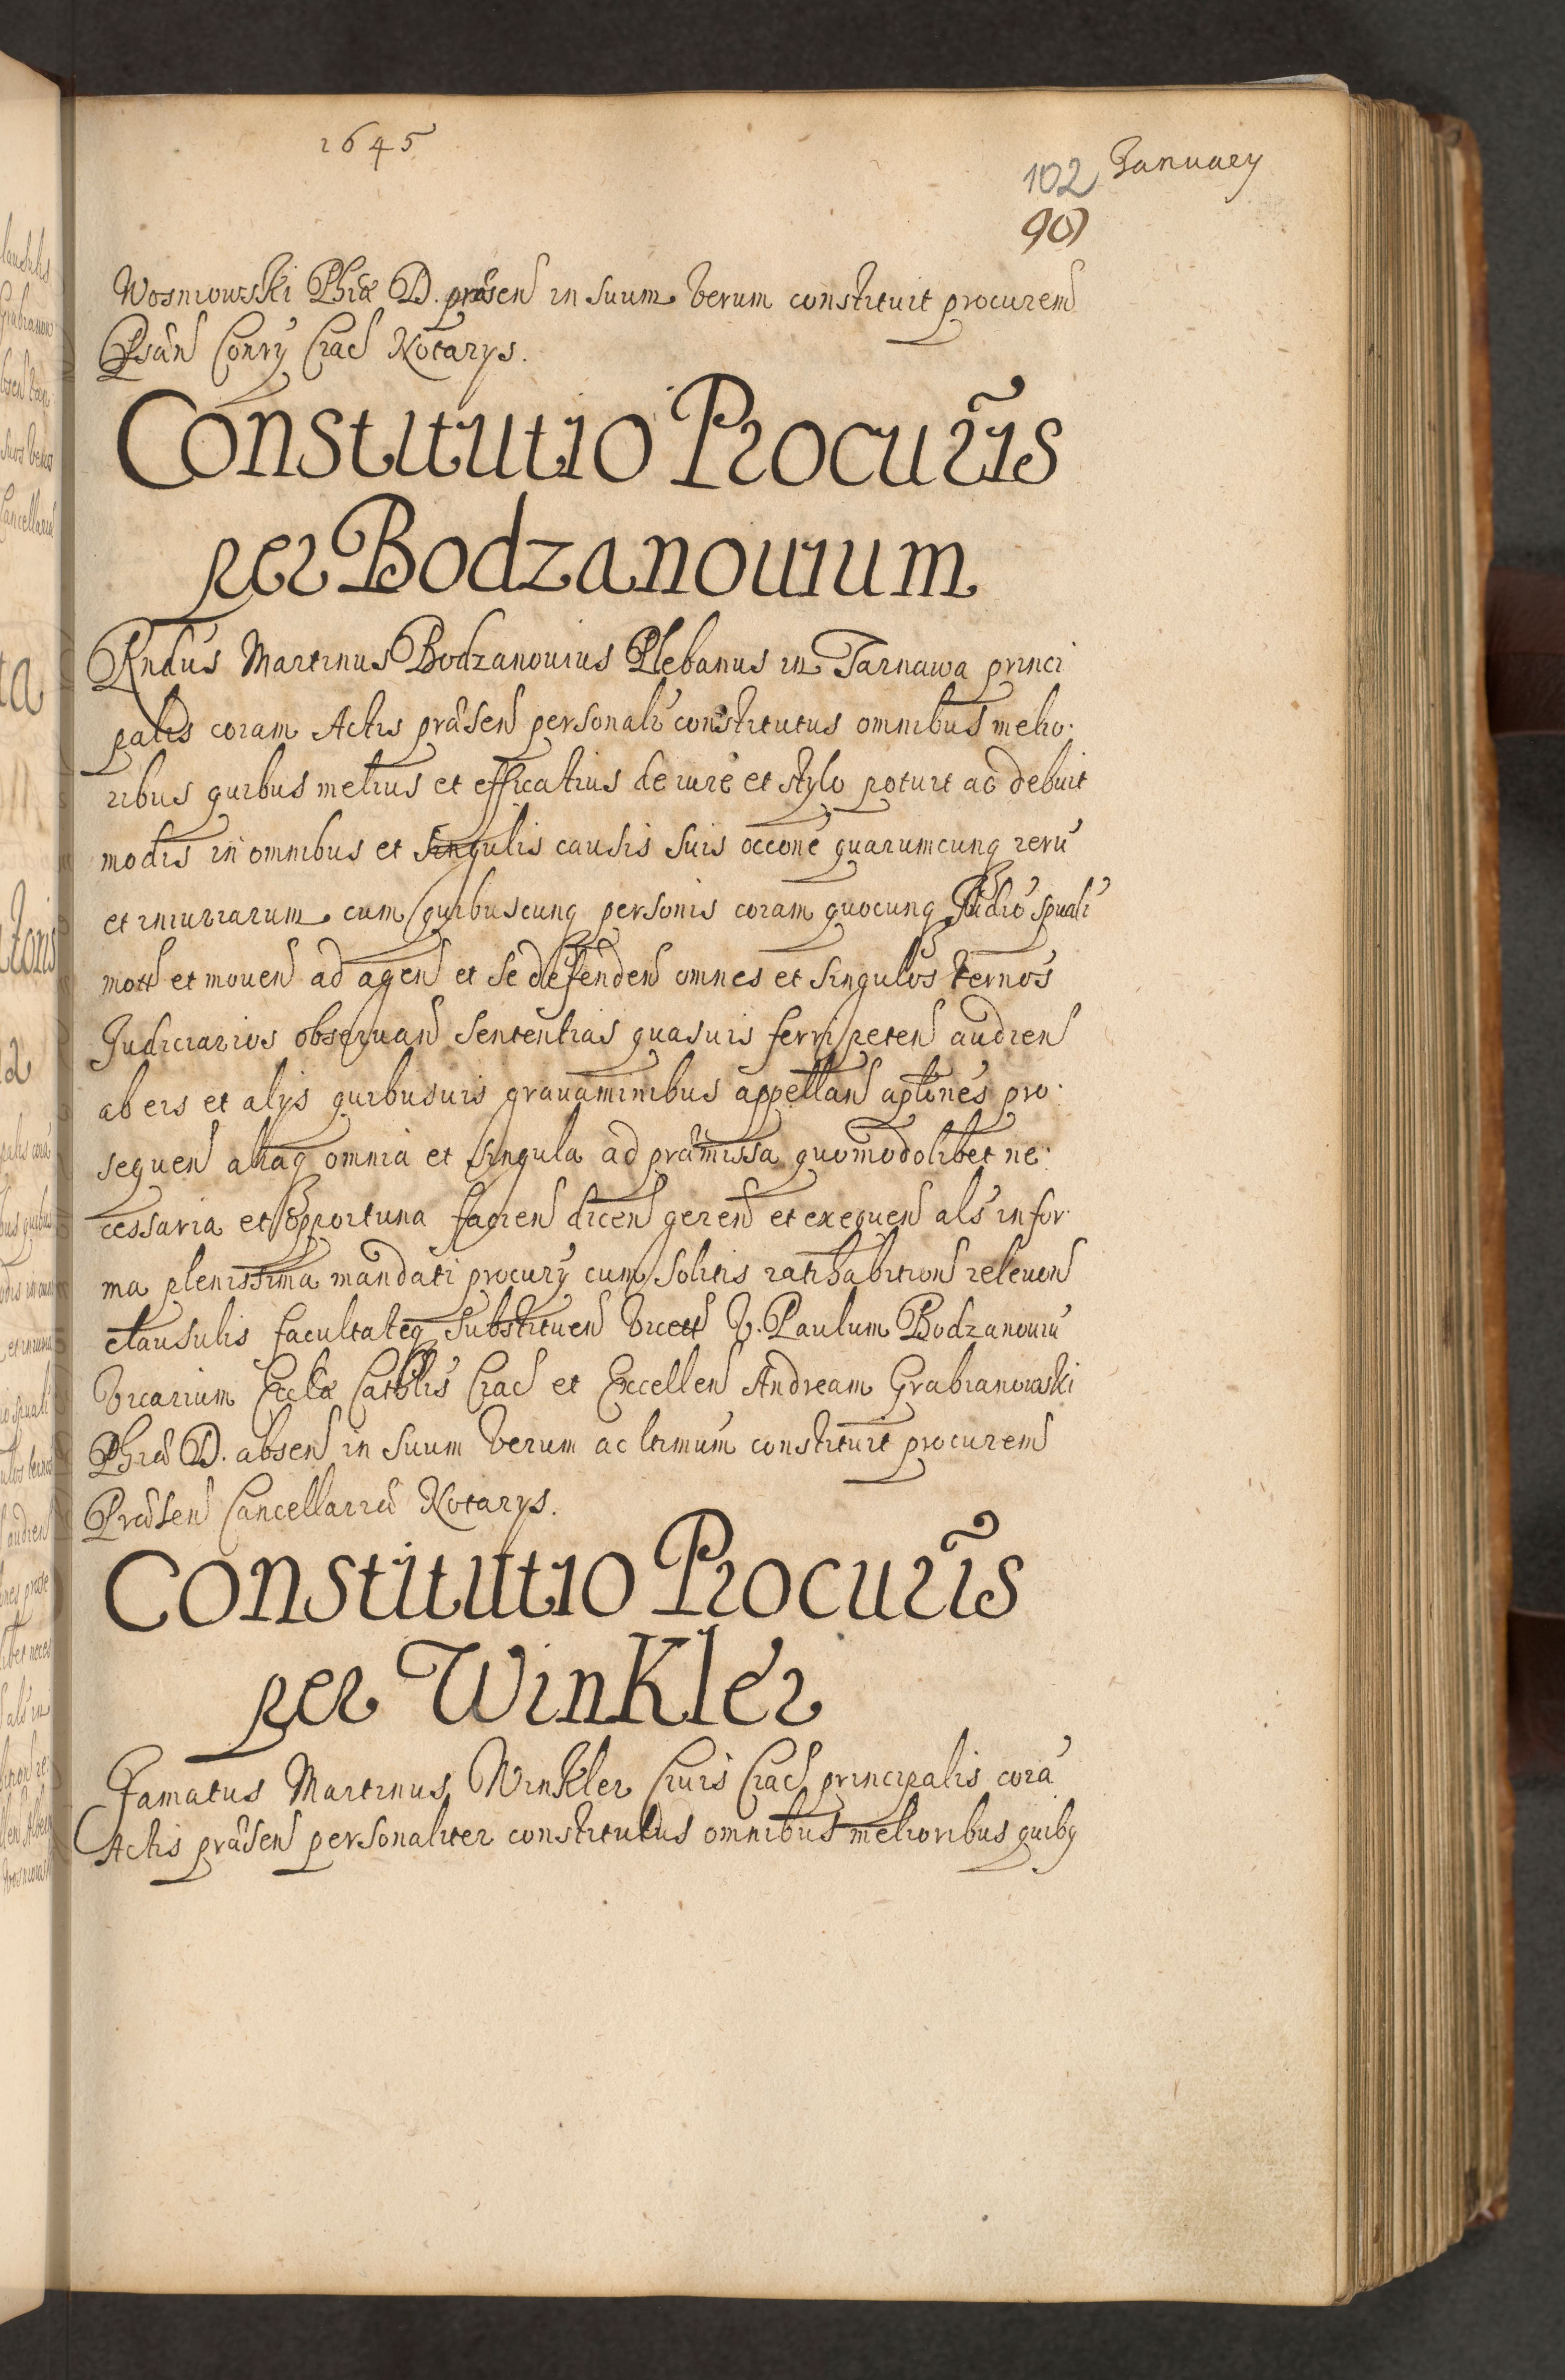 1645
102 January
90
Wosniowski Phiæ D. præsen in suum verum constituit procurem
Psan Conry Crac Notarys.
Constitutio Procuris
per Bodzanouium
Rndus Martinus Bodzanouius Plebanus in Tarnawa princi
palis coram Actis præsen personalr constitutus omnibus melio:
ribus quibus melius et efficatius de iure et stylo potuit ac debuit
modis in omnibus et singulis causis suis occone quarumcunq reru
et iniuriarum cum quibuscunq personis coram quocunq Judio spuali
mott et mouen ad agen et se defenden omnes et singulos ternos
Judiciarios obseruan sententias quasuis ferri peten audien
ab eis et alys quibusuis grauaminibus appellan aplones pro:
sequen aliaq omnia et singula ad præmissa quomodolibet ne:
cessaria et opportuna facien dicen geren et exequen als in for
ma plenissima mandati procury cum solitis ratihabition releuon
clausulis facultateq substituen Vice V. Paulum Bodzanouiu
Vicarium Ecclæ Cathlis Crac et Excellen Andream Grabianowski
Phiæ D. absen in suum verum ac ltimum constituit procurem
Præsen Cancellariæ Notarys.
Constitutio Procuris
per Winkler
Famatus Martinus Winkler Ciuis Crac principalis cora
Actis præsen personaliter constitutus omnibus melioribus quibq